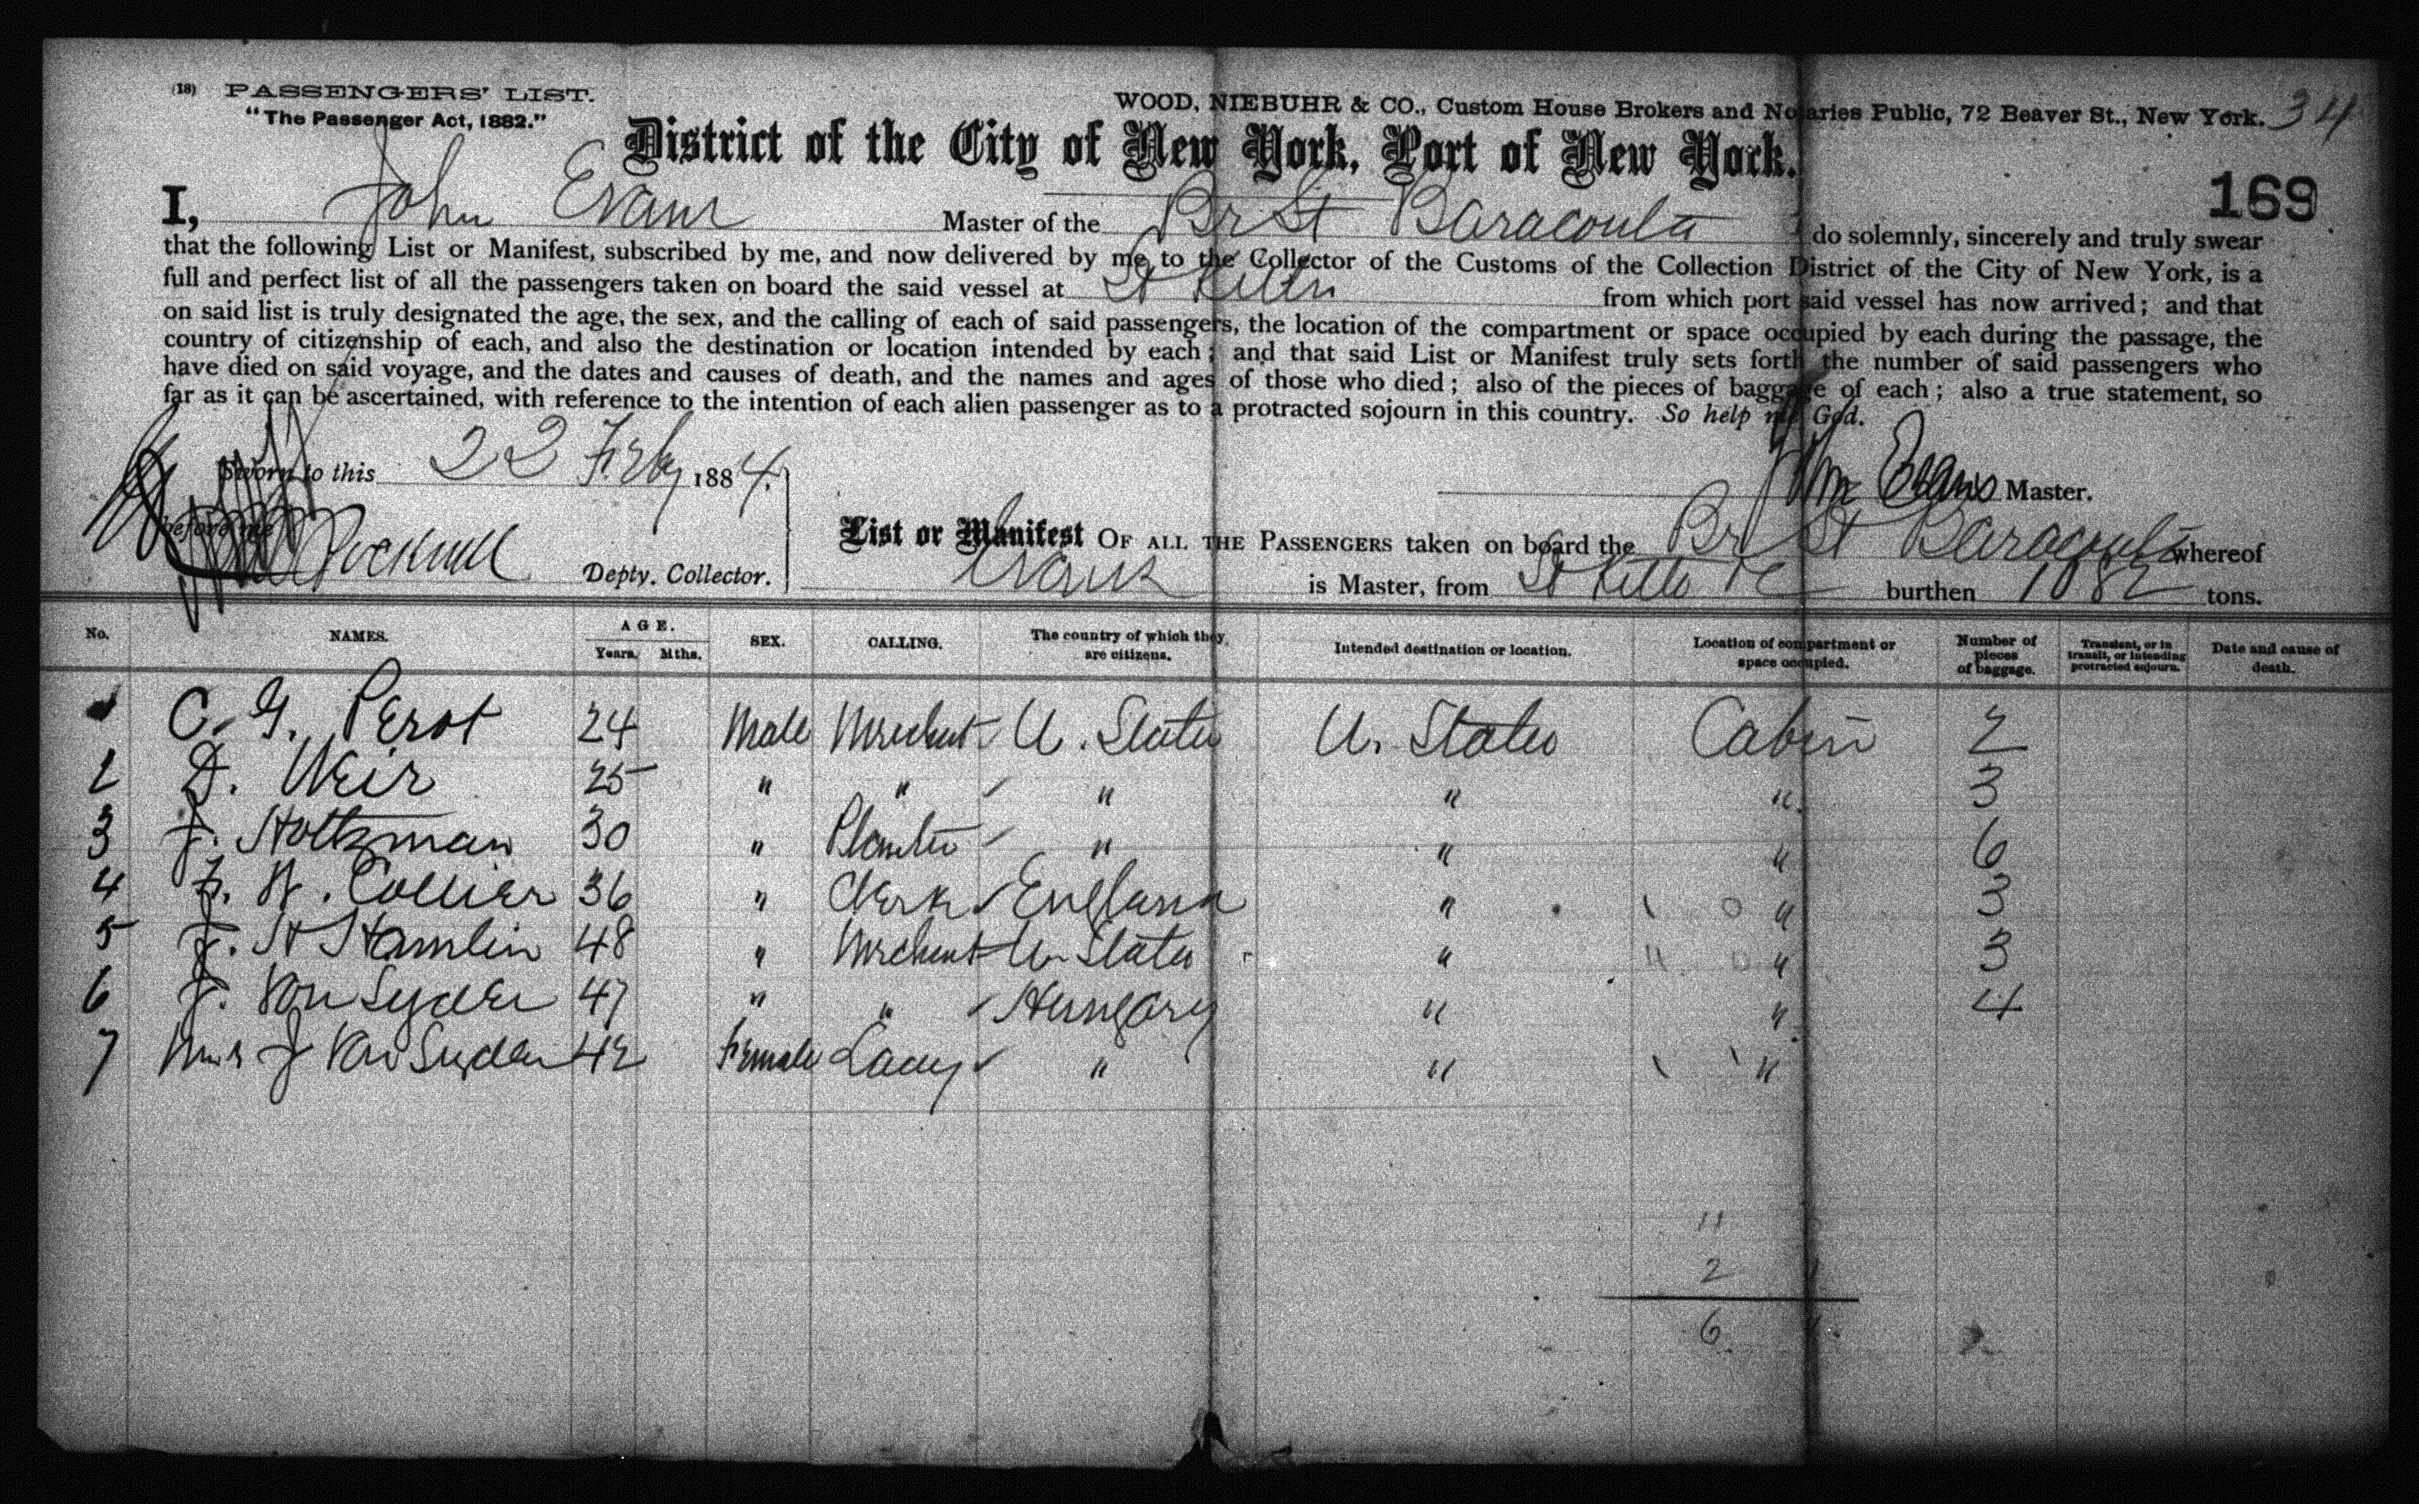 (18) PASSENGERS' LIST.
"The Passenger Act, 1882."
WOOD, NIEBUHR & CO., Custom House Brokers and Notaries Public, 72 Beaver St., New York. 34
District of the City of New York, Port of New York.
169
I, John Evans Master of the Br St Baracouta do solemnly, sincerely and truly swear
that the following List or Manifest, subscribed by me, and now delivered by me to the Collector of the Customs of the Collection District of the City of New York, is a
full and perfect list of all the passengers taken on board the said vessel at St Kitts from which port said vessel has now arrived; and that
on said list is truly designated the age, the sex, and the calling of each of said passengers, the location of the compartment or space occupied by each during the passage, the
country of citizenship of each, and also the destination or location intended by each; and that said List or Manifest truly sets forth the number of said passengers who
have died on said voyage, and the dates and causes of death, and the names and ages of those who died; also of the pieces of baggage of each; also a true statement, so
far as it can be ascertained, with reference to the intention of each alien passenger as to a protracted sojourn in this country. So help me God.
Sworn to this 22 Feby 1884.
Evans Master.
before me
Depty. Collector.
List or Manifest OF ALL THE PASSENGERS taken on board the Br St Baracouta whereof
Evans is Master, from St Kitts burthen 1082 tons.
No. NAMES. AGE. Years. Mths. SEX. CALLING. The country of which they are citizens. Intended destination or location. Location of compartment or space occupied. Number of pieces of baggage. Transient, or in transit, or intending protracted sojourn. Date and cause of death.
1 C. G. Perot 24 Male Merchant U. States U. States Cabin 2
2 D. Weir 25 " " " " " 3
3 J. Holtzman 30 " Planter " " " 6
4 F. W. Collier 36 " Clerk England " " 3
5 J. H Hamlin 48 " Merchant U. States " " 3
6 J. Von Syder 47 " " Hungary " " 4
7 Mrs J Von Syder 42 Female Lady " " "
11
2
6